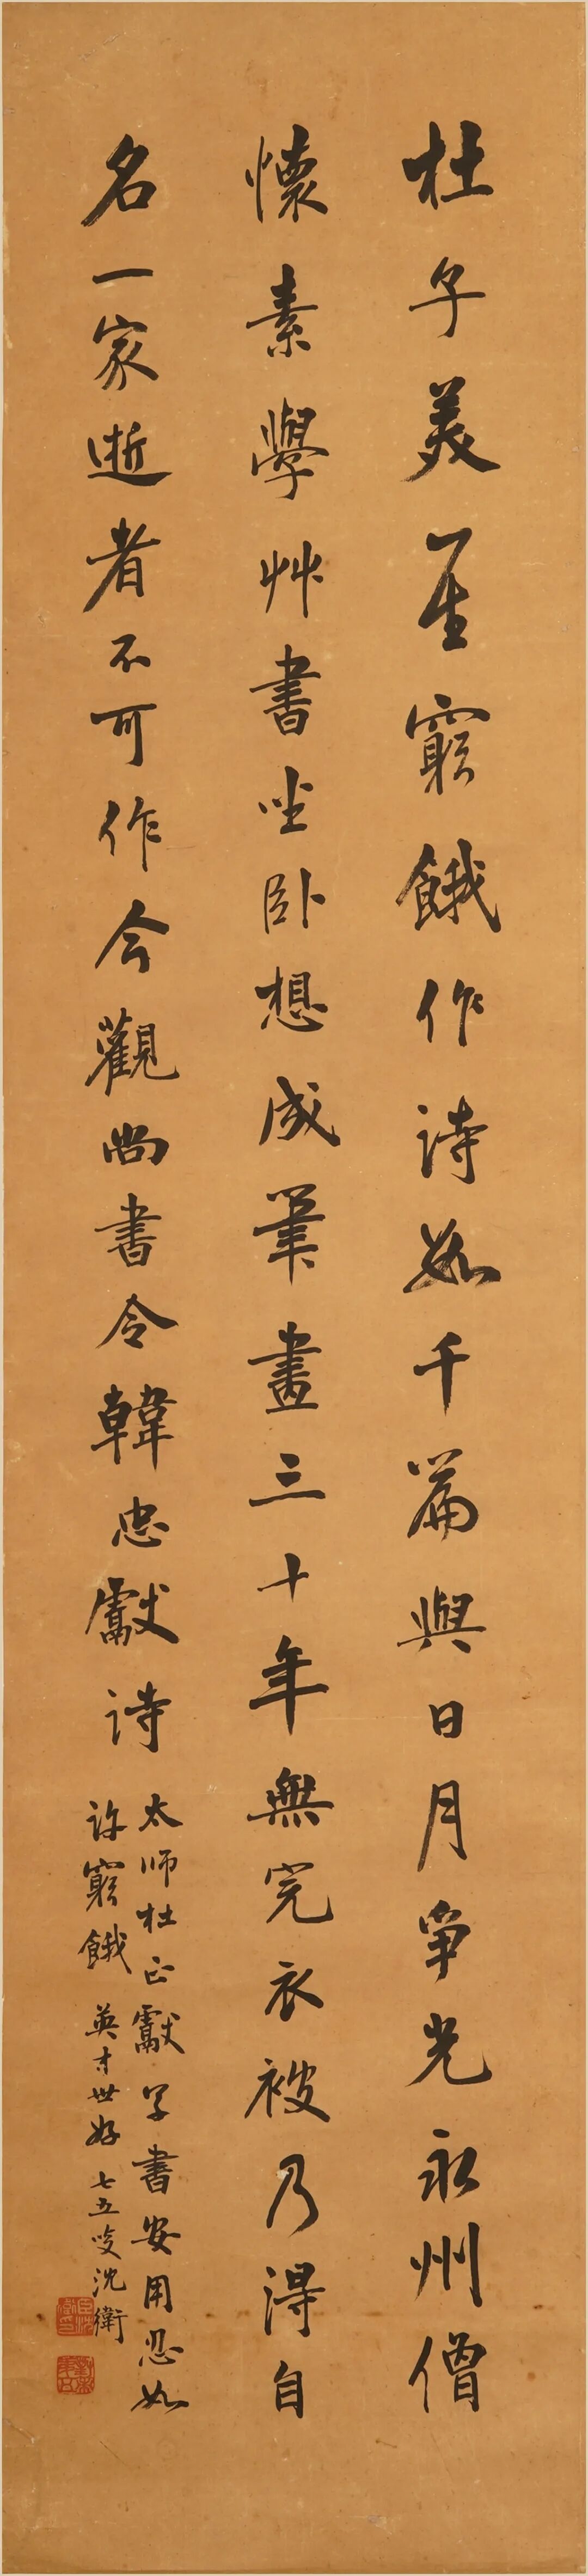 杜子美一生窮餓作詩數千篇與日月爭光永州僧
懷素學艸書坐臥想成筆畫三十年無完衣被乃得自
名一家逝者不可作今觀尚書令韓忠獻詩
太師杜正獻草書安用忍如
許窮餓
英才世好
七五叟沈衛